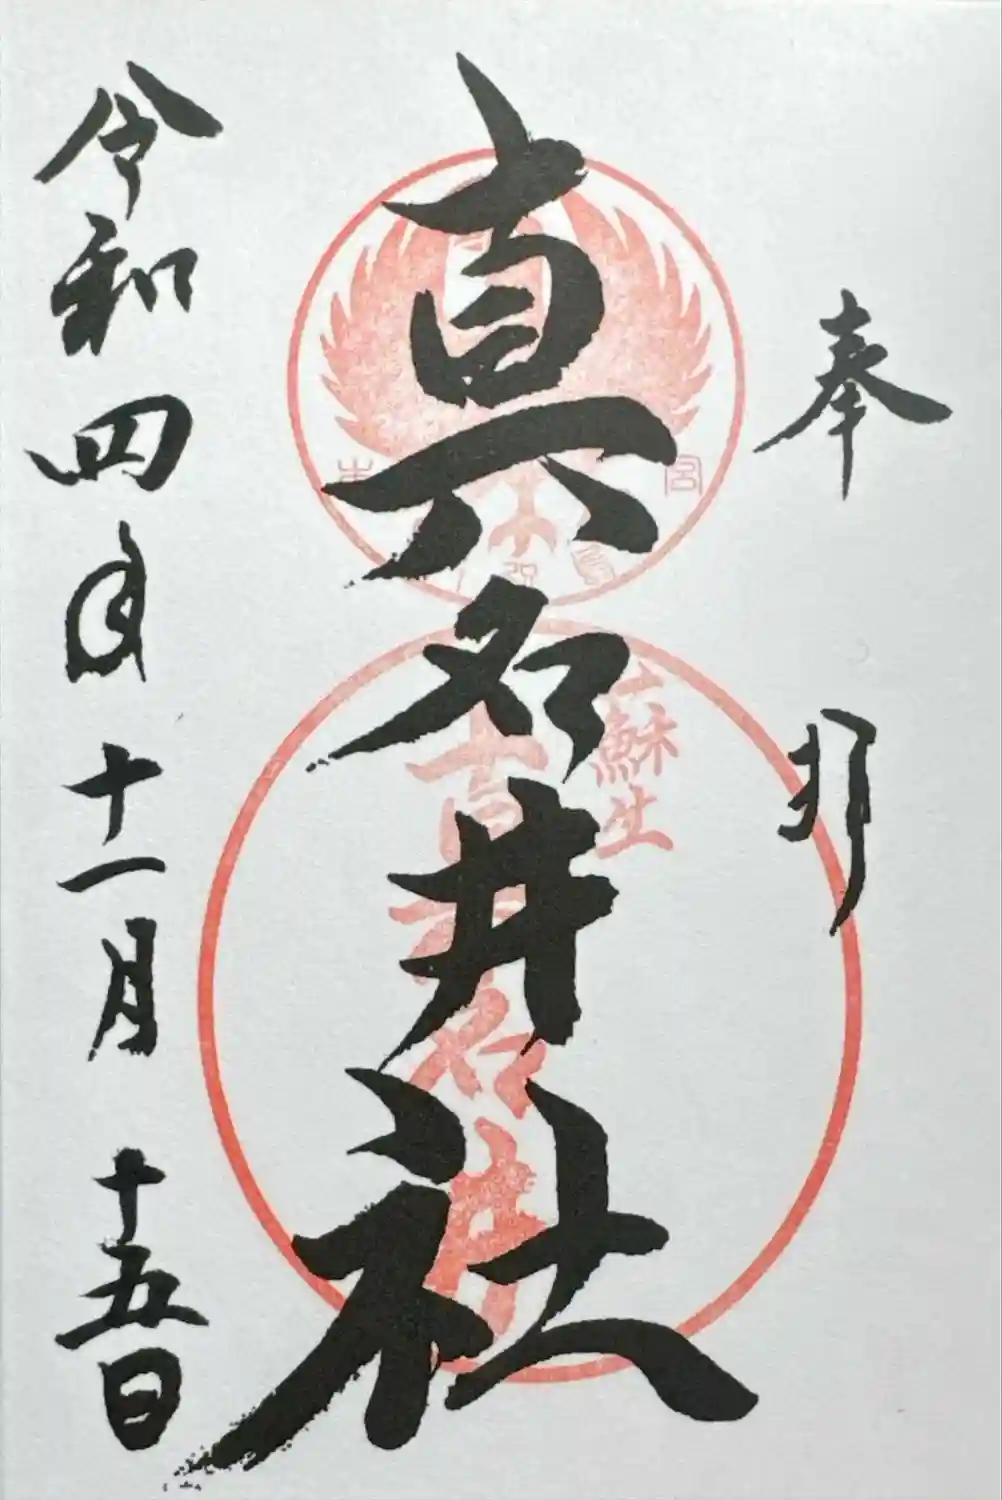 奉拝
真名井社
蘇生
真名井
令和四年十一月十五日